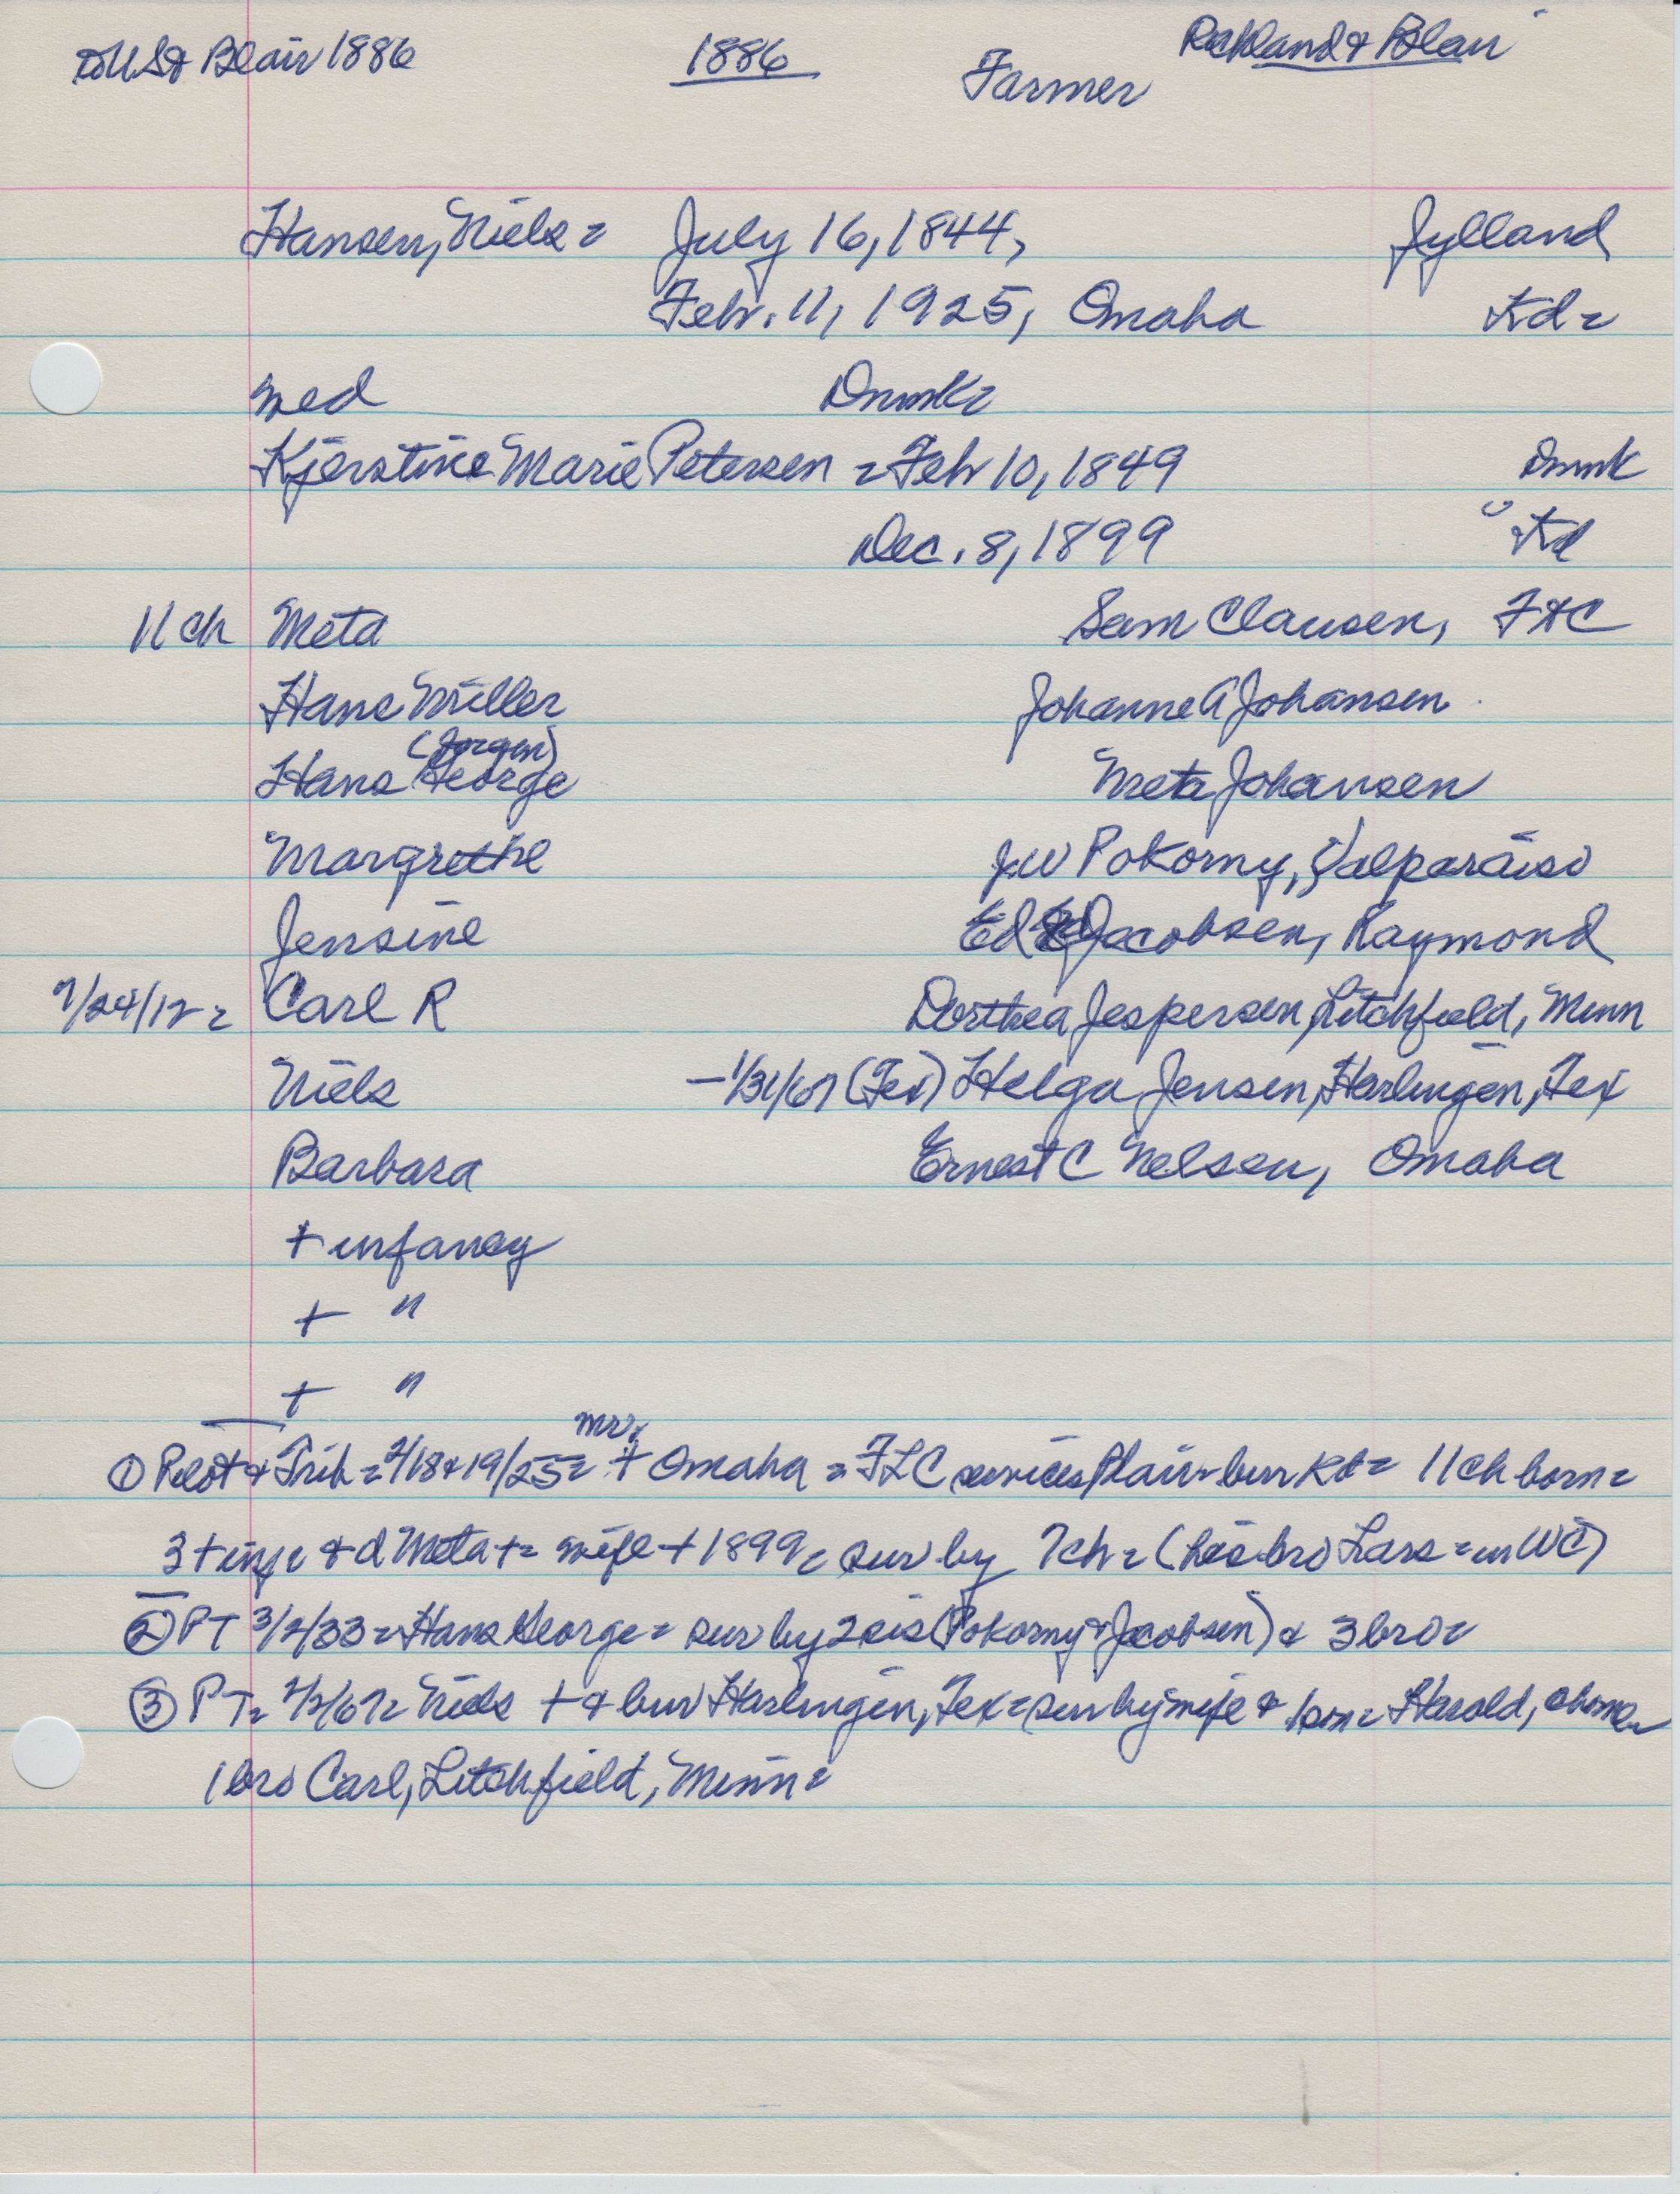 to US & Blair 1886 1886 Farmer Richland & Blair
Hansen, Niels = July 16, 1844, Jylland
Febr. 11, 1925, Omaha Kd =
med Dnmk =
Kjerstine Marie Petersen = Febr 10, 1849 Dnmk
Dec. 8, 1899 " Kd
11 ch Meta Sam Clausen, F&C
Hans Miller Johanne A Johansen
(Jorgen)
Hans George Meta Johansen
Margrethe J W Pokorny, Valparaiso
Jensine Ed Jacobsen, Raymond
7/24/12 = Carl R Dorthea Jespersen, Litchfield, Minn
Niels - 1/31/67 (Tex) Helga Jensen, Harlingen, Tex
Barbara Ernest C Nelsen, Omaha
+ infancy
+ "
+ "
mr.
① Pilot & Trib = 2/18 & 19/25 = + Omaha = FLC services Blair = bur Kd = 11 ch born =
3 + inf = & d Meta + = wife + 1899 = sur by 7 ch = (his bro Lars = in WC)
② PT 3/2/33 = Hans George = sur by 2 sis (Pokorny & Jacobsen) & 3 bro =
③ PT = 2/2/67 = Niels + & bur Harlingen, Tex = sur by wife & 1 son = Harold, at home =
1 bro Carl, Litchfield, Minn =